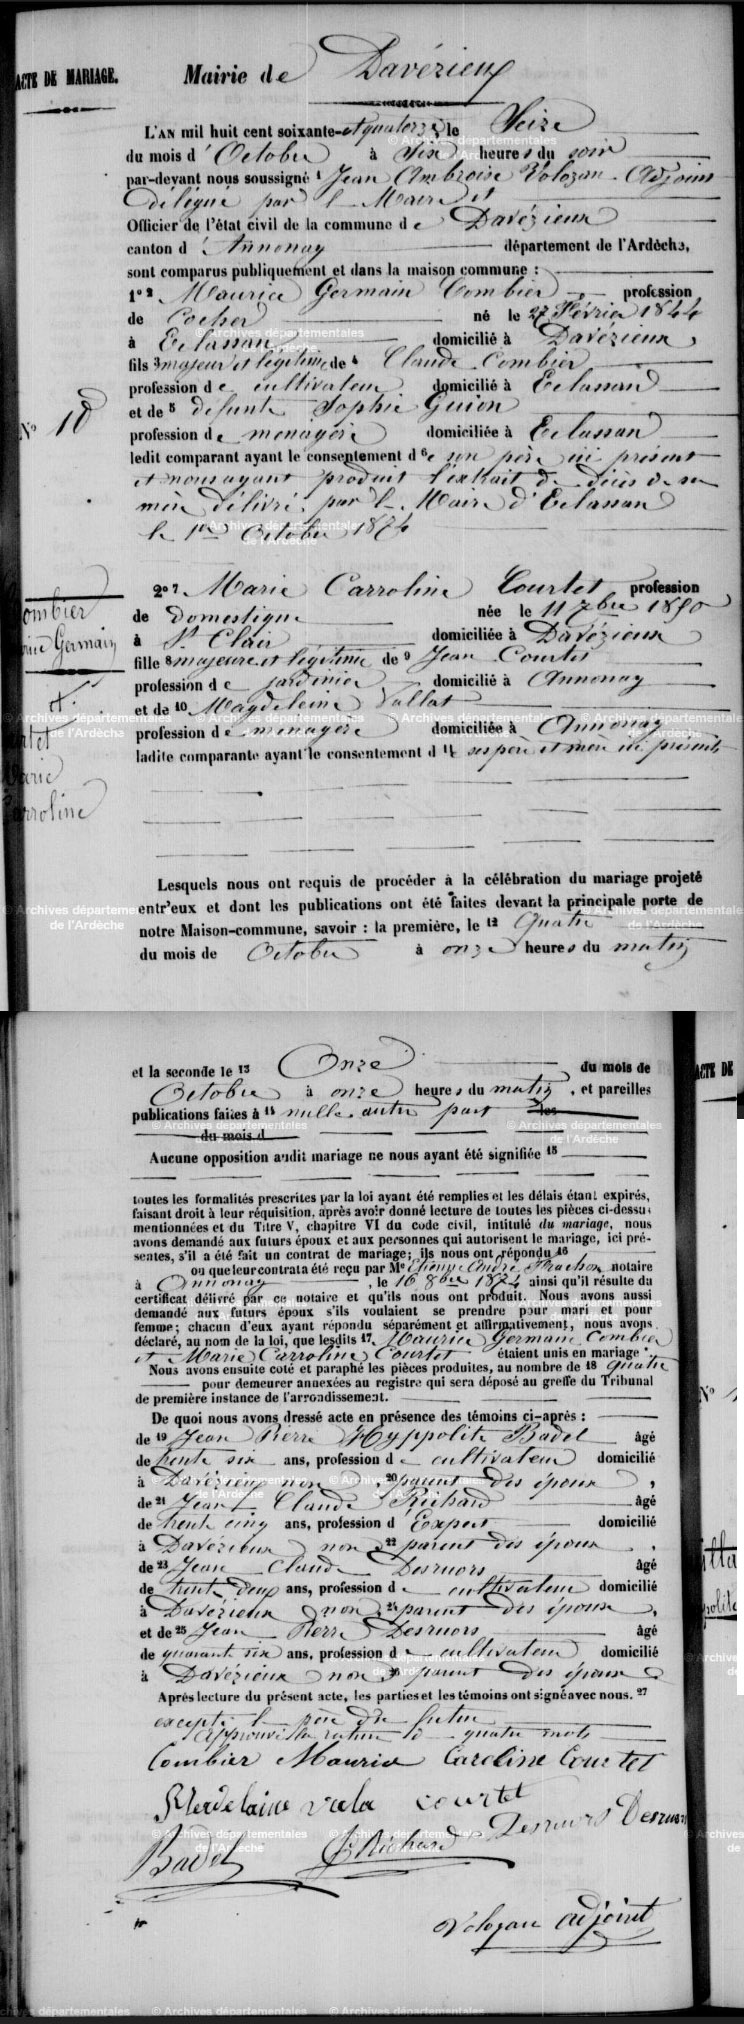 ACTE DE MARIAGE.
Mairie de Davézieux
L'AN mil huit cent soixante-et quatorze, le Seize
du mois d'Octobre à Six heures du soir
par-devant nous soussigné 1 Jean Ambroise Volozan Adjoint
délégué par le Maire et
Officier de l'état civil de la commune de Davézieux
canton d'Annonay département de l'Ardèche,
sont comparus publiquement et dans la maison commune :
1º 2 Maurice Germain Combier profession
de Cocher né le 27 Février 1844
à Eclassan domicilié à Davézieux,
fils 3 majeur et légitime de 4 Claude Combier
profession de cultivateur domicilié à Eclassan
et de 5 défunte Sophie Guion
profession de menagère domiciliée à Eclassan
Nº 18
ledit comparant ayant le consentement d 6 e son père ici présent
et nous ayant produit l'extrait de décès de sa
mère délivré par le Maire d'Eclassan
le 1er Octobre 1874
2º 7 Marie Carroline Courtet profession
de domestique née le 11 7bre 1850
à St Clair domiciliée à Davézieux
fille 8 majeure et légitime de 9 Jean Courtet
profession de jardinier domicilié à Annonay
et de 10 Magdeleine Vallat
profession de menagère domiciliée à Annonay
ladite comparante ayant le consentement d 11 e ses père et mère ici présents
Combier
Germain
et
Marie
Carroline
Lesquels nous ont requis de procéder à la célébration du mariage projeté
entr'eux et dont les publications ont été faites devant la principale porte de
notre Maison-commune, savoir : la première, le 12 Quatre
du mois de Octobre à onze heures du matin
et la seconde le 13 Onze du mois de
Octobre à onze heures du matin, et pareilles
publications faites à 14 nulle autre part les
du mois d
Aucune opposition audit mariage ne nous ayant été signifiée 15
toutes les formalités prescrites par la loi ayant été remplies et les délais étant expirés,
faisant droit à leur réquisition, après avoir donné lecture de toutes les pièces ci-dessus
mentionnées et du Titre V, chapitre VI du code civil, intitulé du mariage, nous
avons demandé aux futurs époux et aux personnes qui autorisent le mariage, ici pré-
sentes, s'il a été fait un contrat de mariage; ils nous ont répondu 16
ou que leur contrat a été reçu par Me Etienne André Frachon notaire
à Annonay, le 16 8bre 1874 ainsi qu'il résulte du
certificat délivré par ce notaire et qu'ils nous ont produit. Nous avons aussi
demandé aux futurs époux s'ils voulaient se prendre pour mari et pour
femme; chacun d'eux ayant répondu séparément et affirmativement, nous avons
déclaré, au nom de la loi, que lesdits 17 Maurice Germain Combier
et Marie Carroline Courtet étaient unis en mariage.
Nous avons ensuite coté et paraphé les pièces produites, au nombre de 18 quatre
pour demeurer annexées au registre qui sera déposé au greffe du Tribunal
de première instance de l'arrondissement.
De quoi nous avons dressé acte en présence des témoins ci-après :
de 19 Jean Pierre Hyppolite Badel âgé
de trente six ans, profession de cultivateur domicilié
à Davézieux non 20 parent des époux,
de 21 Jean Claude Richard âgé
de trente cinq ans, profession d'Expert domicilié
à Davézieux non 22 parent des époux.
de 23 Jean Claude Desruors âgé
de trente deux ans, profession de cultivateur domicilié
à Davézieux non 24 parent des époux,
et de 25 Jean Pierre Desruors âgé
de quarante six ans, profession de cultivateur domicilié
à Davézieux non 26 parent des époux
Après lecture du présent acte, les parties et les témoins ont signé avec nous. 27
excepté le père du futur
approuvé la rature de quatre mots
Combier Maurice Caroline Courtet
Merdelaine vala courtet
Desruors Desruors
Badel Richard
Volozan adjoint
ACTE DE
Nº 1
© Archives départementales
de l'Ardèche